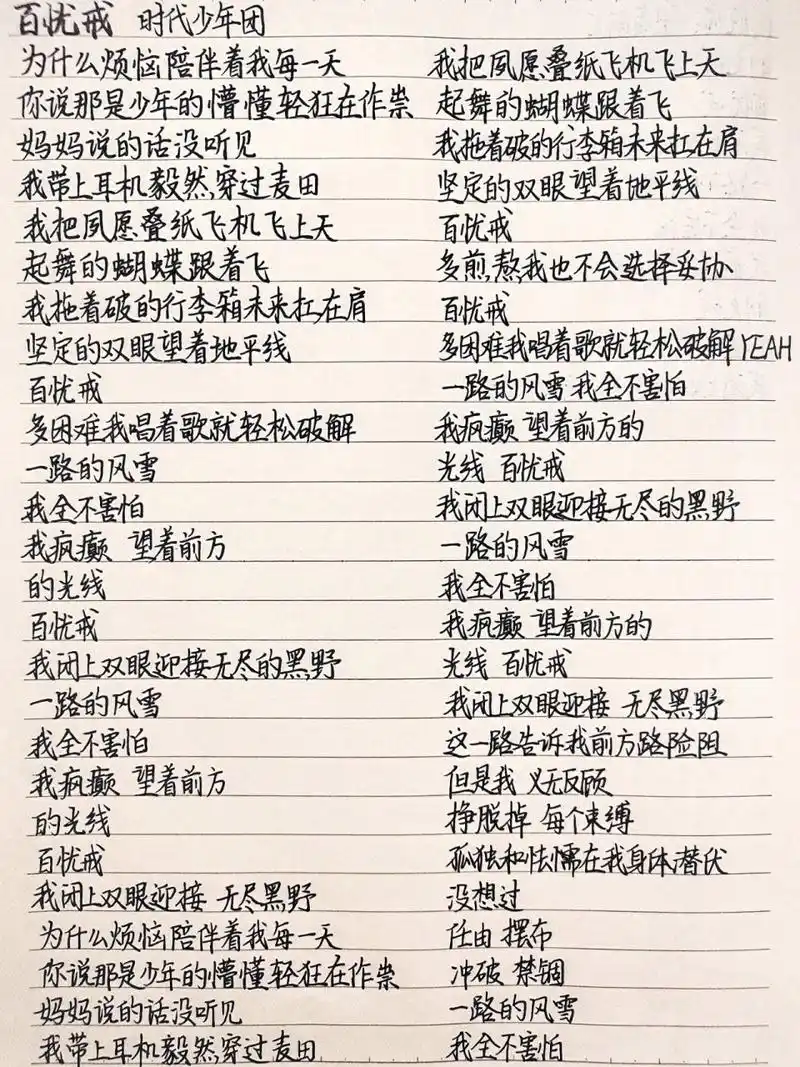 百忧戒 时代少年团
为什么烦恼陪伴着我每一天
你说那是少年的懵懂轻狂在作祟
妈妈说的话没听见
我带上耳机毅然穿过麦田
我把夙愿叠纸飞机飞上天
起舞的蝴蝶跟着飞
我拖着破的行李箱未来扛在肩
坚定的双眼望着地平线
百忧戒
多困难我唱着歌就轻松破解
一路的风雪
我全不害怕
我疯癫 望着前方
的光线
百忧戒
我闭上双眼迎接无尽的黑野
一路的风雪
我全不害怕
我疯癫 望着前方
的光线
百忧戒
我闭上双眼迎接 无尽黑野
为什么烦恼陪伴着我每一天
你说那是少年的懵懂轻狂在作祟
妈妈说的话没听见
我带上耳机毅然穿过麦田
我把夙愿叠纸飞机飞上天
起舞的蝴蝶跟着飞
我拖着破的行李箱未来扛在肩
坚定的双眼望着地平线
百忧戒
多煎熬我也不会选择妥协
百忧戒
多困难我唱着歌就轻松破解YEAH
一路的风雪 我全不害怕
我疯癫 望着前方的
光线 百忧戒
我闭上双眼迎接无尽的黑野
一路的风雪
我全不害怕
我疯癫 望着前方的
光线 百忧戒
我闭上双眼迎接 无尽黑野
这一路告诉我前方路险阻
但是我 义无反顾
挣脱掉 每个束缚
孤独和怯懦在我身体潜伏
没想过
任由 摆布
冲破 禁锢
一路的风雪
我全不害怕